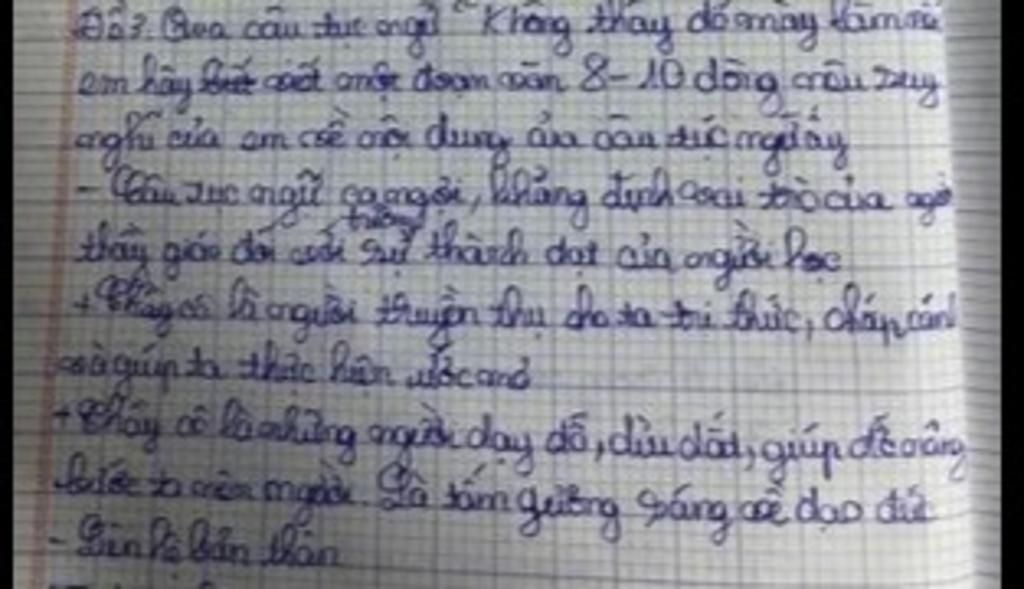 Đề 3. Qua câu tục ngữ "Không thầy đố mày làm nên
em hãy viết một đoạn văn 8-10 dòng nêu suy
nghĩ của em về nội dung của câu tục ngữ ấy
- Câu tục ngữ ca ngợi, khẳng định vai trò của người
thầy giáo đối với sự thành đạt của người học
+ Thầy cô là người truyền thụ cho ta tri thức, chắp cánh
và giúp ta thực hiện ước mơ
+ Thầy cô là những người dạy dỗ, dìu dắt, giúp đỡ nâng
bước ta nên người. Là tấm gương sáng về đạo đức
- Liên hệ bản thân